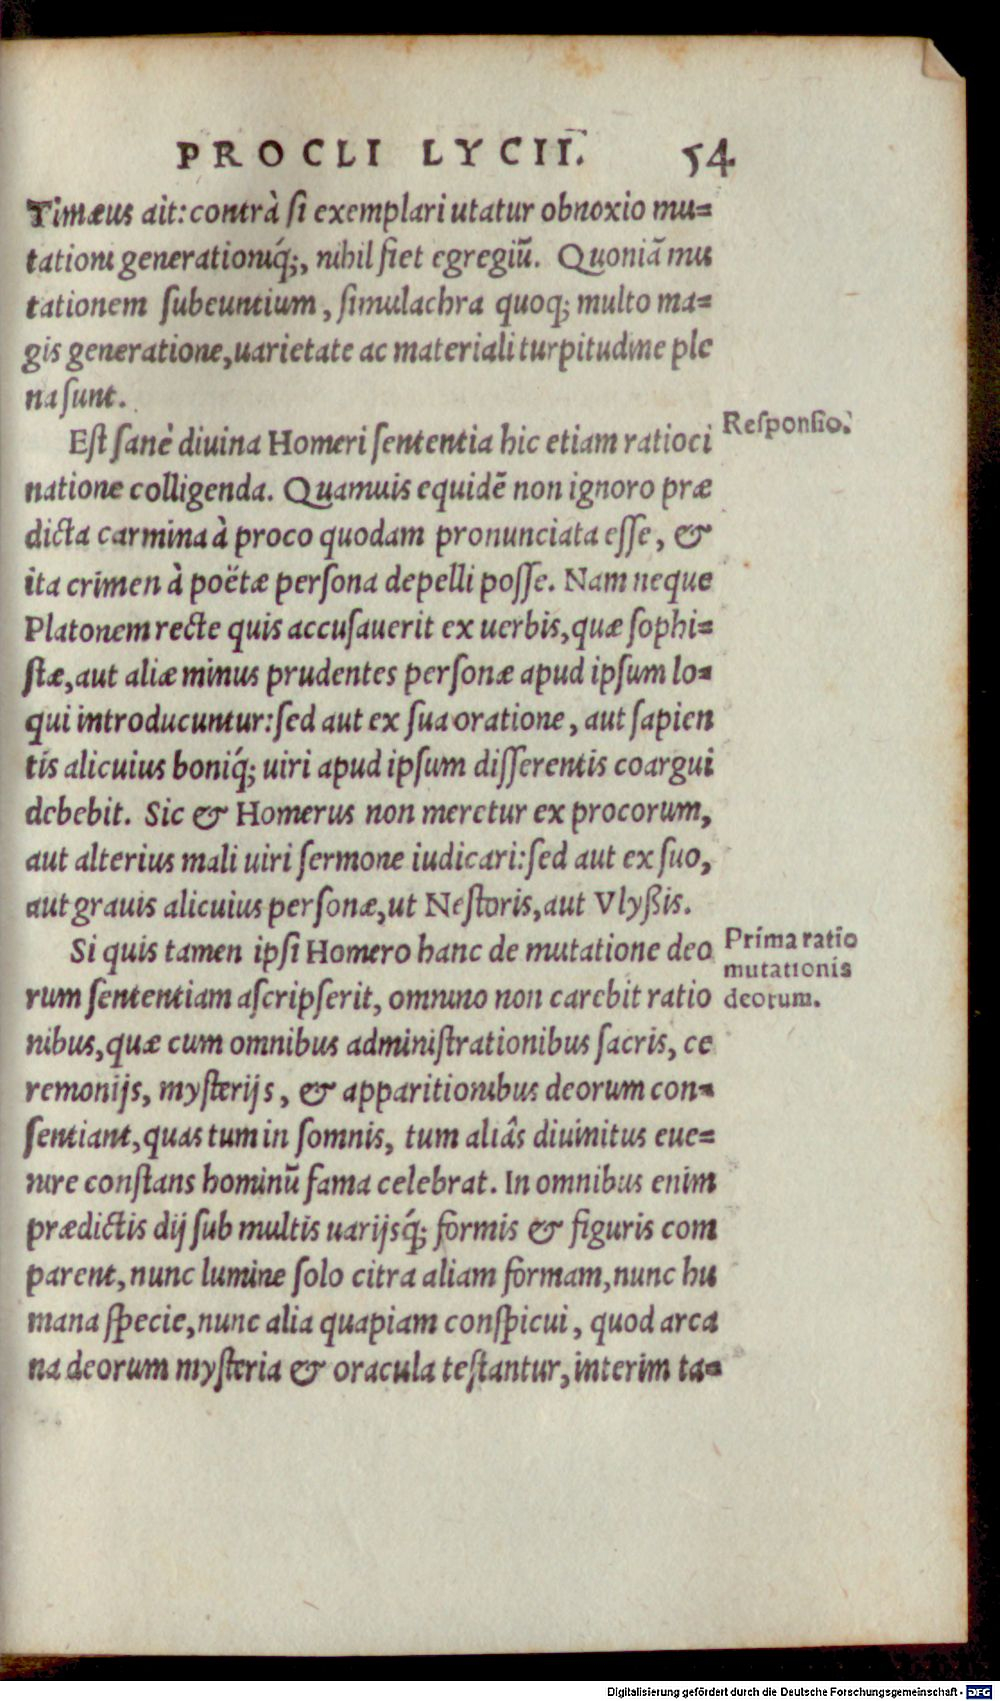 PROCLI LYCII. 54
Timæus ait: contrà si exemplari utatur obnoxio mu=
tationi generationíq́;, nihil fiet egregiũ. Quoniã mu
tationem subeuntium, simulachra quoq; multo ma=
gis generatione, uarietate ac materiali turpitudine ple
na sunt.
Responsio.
Est sanè diuina Homeri sententia hic etiam ratioci
natione colligenda. Quamuis equidẽ non ignoro præ
dicta carmina à proco quodam pronunciata esse, &
ita crimen à poëtæ persona depelli posse. Nam neque
Platonem recte quis accusauerit ex uerbis, quæ sophi=
stæ, aut aliæ minus prudentes personæ apud ipsum lo=
qui introducuntur: sed aut ex sua oratione, aut sapien
tis alicuius boniq́; uiri apud ipsum disserentis coargui
debebit. Sic & Homerus non meretur ex procorum,
aut alterius mali uiri sermone iudicari: sed aut ex suo,
aut grauis alicuius personæ, ut Nestoris, aut Vlyßis.
Prima ratio
mutationis
deorum.
Si quis tamen ipsi Homero hanc de mutatione deo
rum sententiam ascripserit, omnino non carebit ratio
nibus, quæ cum omnibus administrationibus sacris, ce
remonijs, mysterijs, & apparitionibus deorum con=
sentiant, quas tum in somnis, tum aliâs diuinitus eue=
nire constans hominũ fama celebrat. In omnibus enim
prædictis dij sub multis uarijsq́; formis & figuris com
parent, nunc lumine solo citra aliam formam, nunc hu
mana specie, nunc alia quapiam conspicui, quod arca
na deorum mysteria & oracula testantur, interim ta=
Digitalisierung gefördert durch die Deutsche Forschungsgemeinschaft - DFG